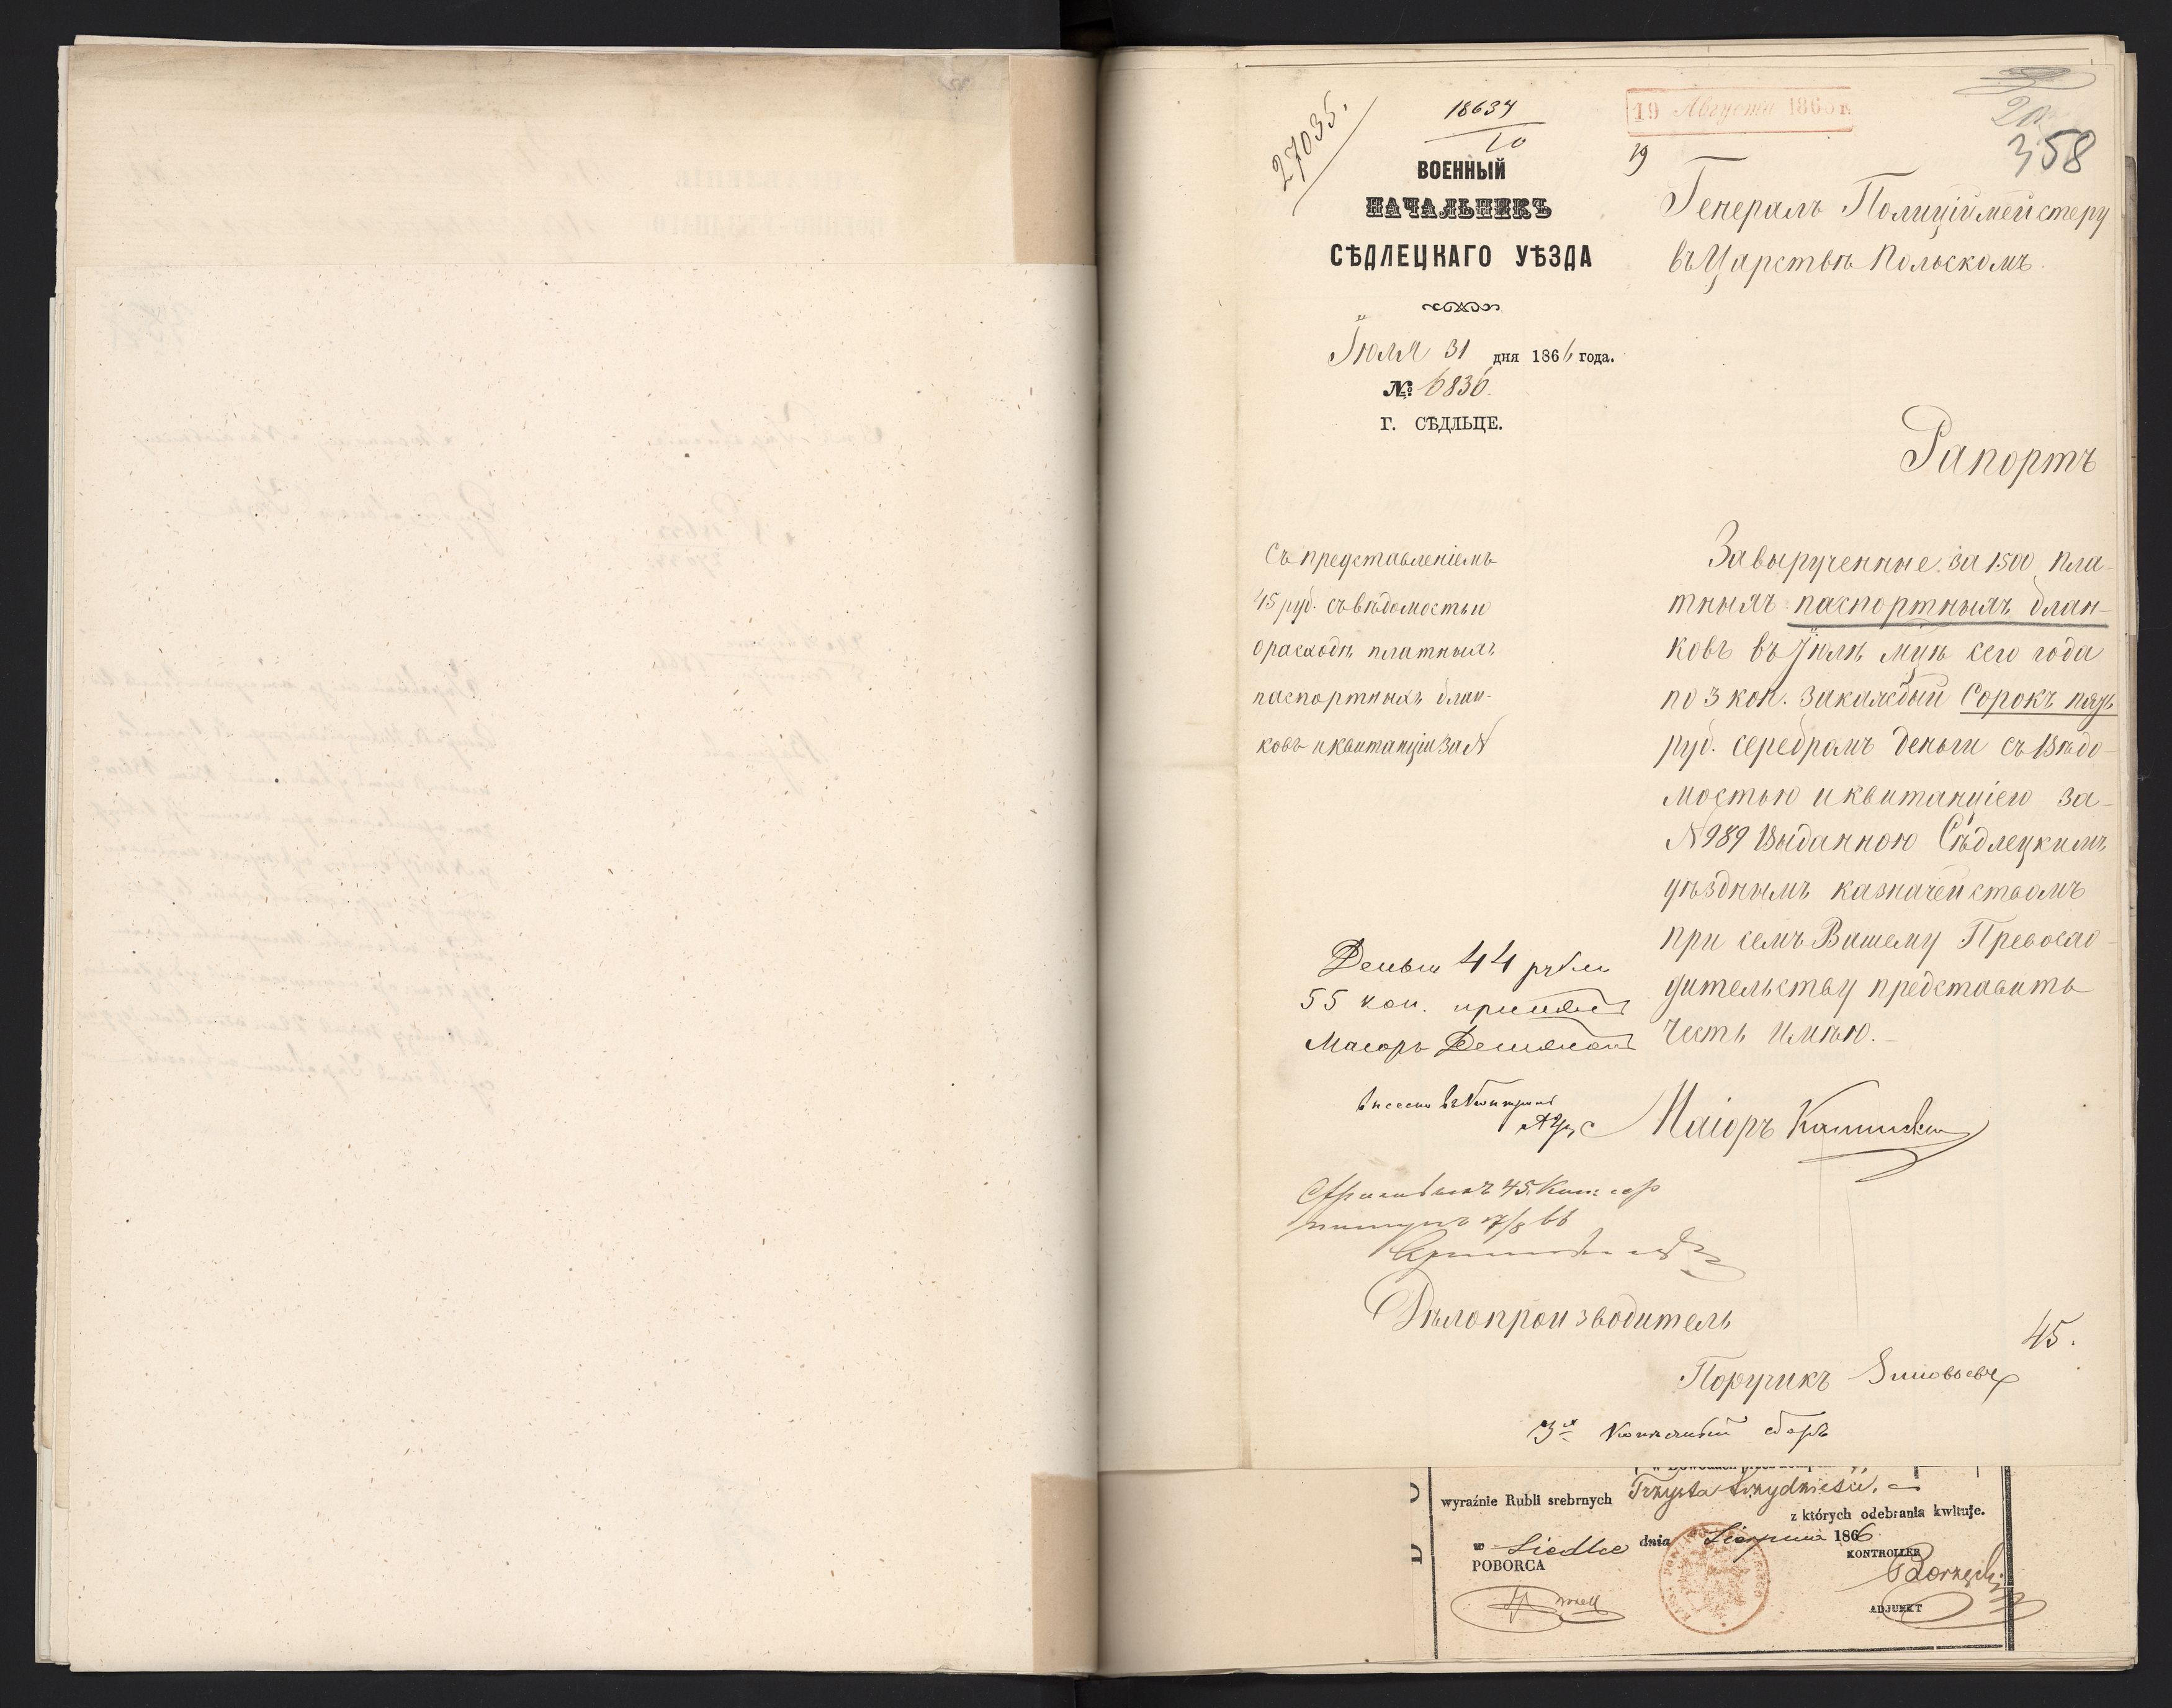 27035.
18634
10
19 Августа 1866 г.
358
19
ВОЕННЫЙ
НАЧАЛЬНИКЪ
СѢДЛЕЦКАГО УѢЗДА
Іюля 31 дня 1866 года.
№ 6836
Г. СѢДЛЬЦЕ.
Генералъ Полиціймейстеру
въ Царствѣ Польскомъ.
Рапортъ
Съ представленіемъ
45 руб. съ вѣдомостью
о расходѣ платныхъ
паспортныхъ блан-
ковъ и квитанціи за N
Завырученные за 1500 пла-
тныхъ паспортныхъ блан-
ковъ въ Іюлѣ мцѣ сего года
по 3 коп. закаждый Сорокъ пять
руб. серебромъ деньги съ Вѣдо-
мостью и квитанціею за
N 989 Выданною Сѣдлецкимъ
уѣзднымъ казначействомъ
при семъ Вашему Превосхо-
дительству представить
честь имѣю.-
Деньги 44 рубли
55 коп. принялъ
Маіоръ
внесено въ Контроль
Маіоръ Каминскій
45 Коп. сер
17/8 66
Дѣлопроизводитель
45.
Поручикъ Зиновьевъ
3х Копѣечный сборъ
wyraźnie Rubli srebrnych Trzysta trzydzieści.
z których odebrania kwituje.
w Siedlce dnia Sierpnia 1866
POBORCA
KONTROLLER
ADJUNKT